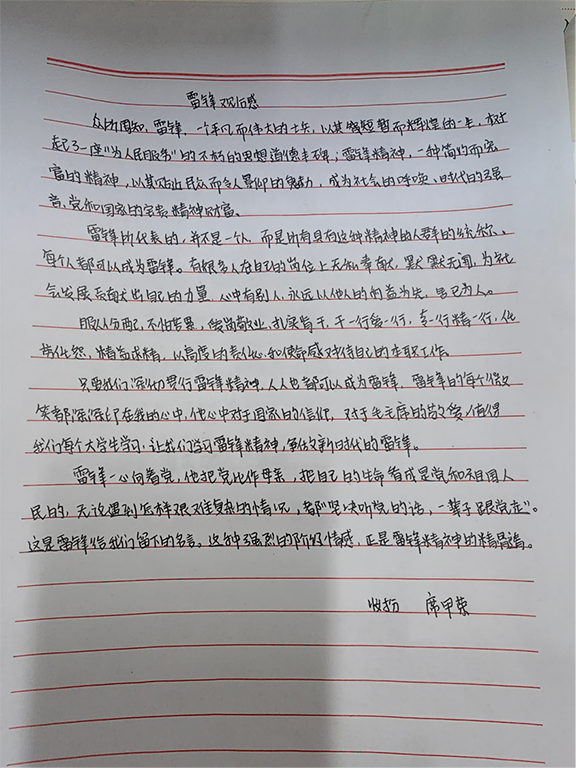 雷锋观后感
众所周知，雷锋，一个平凡而伟大的士兵，以其短暂而辉煌的一生，树
起了一座“为人民服务”的不朽的思想道德丰碑；雷锋精神，一种简约而宏
富的精神，以其贴近民众而令人景仰的魅力，成为社会的呼唤、时代的强
音、党和国家的宝贵精神财富。
雷锋所代表的，并不是一个人，而是所有具有这种精神的人群的统称、
每个人都可以成为雷锋。有很多人在自己的岗位上无私奉献，默默无闻，为社
会发展贡献出自己的力量，心中有别人，永远以他人的利益为先，舍己为人。
服从分配，不怕苦累，爱岗敬业，扎实肯干，干一行爱一行，专一行精一行，任
劳任怨，精益求精，以高度的责任心和使命感对待自己的本职工作。
只要我们深切贯行雷锋精神，人人也都可以成为雷锋，雷锋的每个微
笑都深深印在我的心中，他心中对于国家的信仰，对于毛主席的敬爱值得
我们每个大学生学习，让我们学习雷锋精神，争做新时代的雷锋。
雷锋一心向着党，他把党比作母亲，把自己的生命看成是党和祖国人
民的，无论遇到怎样艰难复杂的情况，都“坚决听党的话，一辈子跟党走”。
这是雷锋给我们留下的名言。这种强烈的阶级情感，正是雷锋精神的精髓。
席甲荣